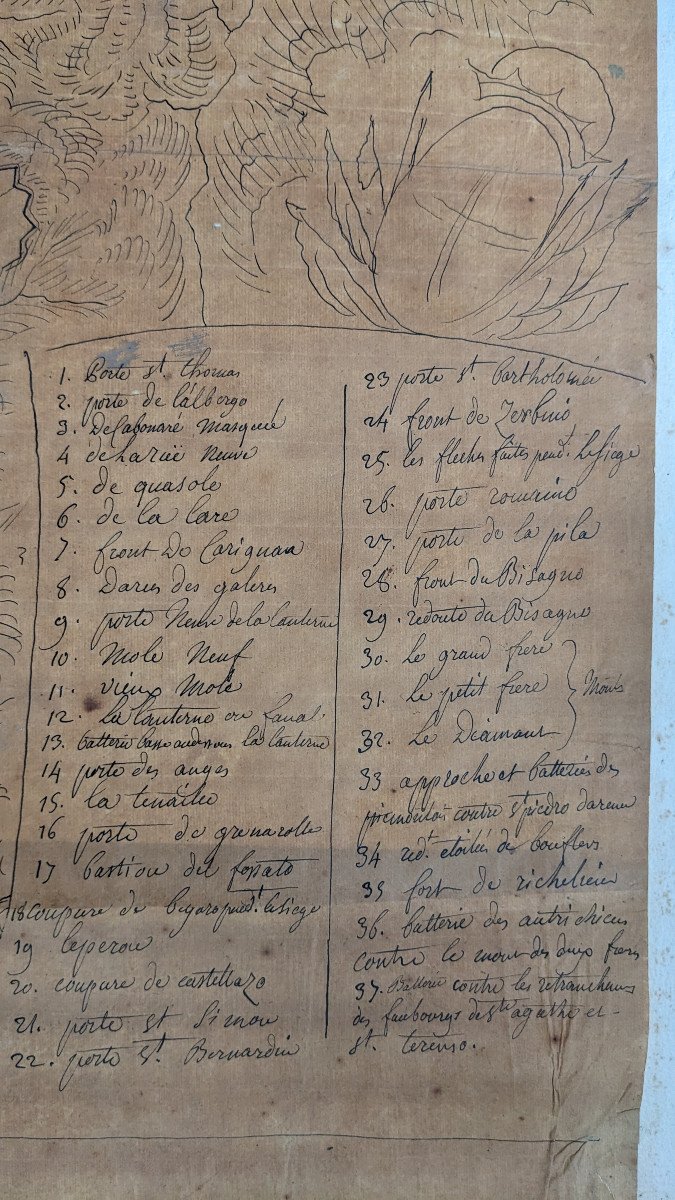 1. Porte st. thomas
2. porte de l'albergo
3. Masqué
4 Neuve
5. de quasole
6. de la
7. front De Carignan
8. Darce des galeres
9. porte Neuve de la lanterne
10. Mole Neuf
11. vieux Mole
12. La lanterne ou fanal.
13. batterie basse la lanterne
14 porte des anges
15. la tenaille
16 porte de grenarolle
17 bastion del fossato
18 coupure de pendt. le siege
19 leperon
20. coupure de castellazo
21. porte st Simon
22. porte st. Bernardin
23 porte st. bartholomei
24 front de Zerbino
25. les fleches faites pendt. Le siege
26. porte romaino
27. porte de la pila
28. front du Bisagno
29. redoute du Bisagno
30. Le grand frere
31. Le petit frere Monts
32. Le Diamant
33 approche et batteries des
piemontois contre st piedro darenne
34 redt. etoilée de bouflers
35 fort de richelieu
36. batterie des autrichiens
contre le mont des deux freres
37. Batterie contre les retranchemens
des faubourgs de ste agathe et
st. terenso.
3